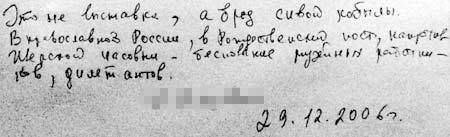 Это не выставка, а бред сивой кобылы.
В православной России, в Рождественский пост, напротив
Иверской часовни – беснование музейных работни-
ков, дилетантов.
29.12.2006г.